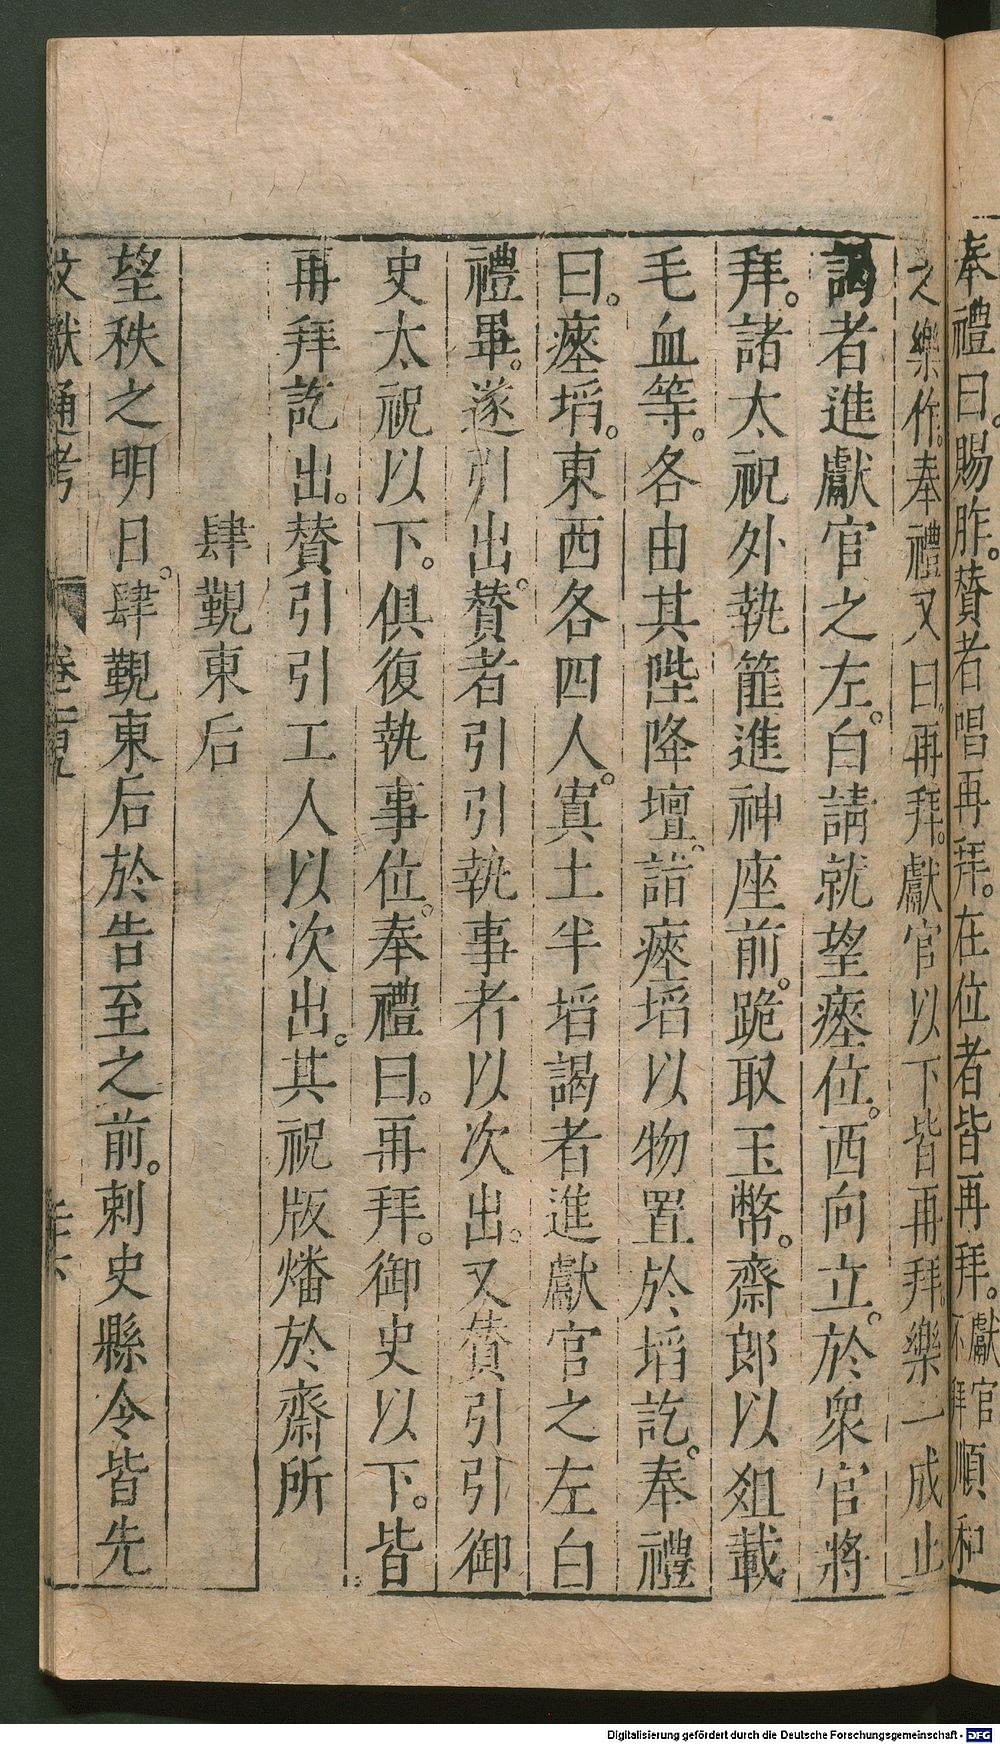 奉禮曰。賜胙。贊者唱再拜。在位者皆再拜。獻官順和不拜
之樂作。奉禮又曰。再拜。獻官以下皆再拜。樂一成止
謁者進獻官之左。白請就望瘞位。西向立。於衆官將
拜。諸太祝外執篚進神座前。跪取玉幣。齋郎以俎載
毛血等。各由其陛降壇。詣瘞埳以物置於埳訖。奉禮
曰。瘞埳。東西各四人。寘土半埳謁者進獻官之左白
禮畢。遂引出。贊者引引執事者以次出。又贊引引御
史太祝以下。俱復執事位。奉禮曰。再拜。御史以下。皆
再拜訖出。贊引引工人以次出。其祝版燔於齋所
肆覲東后
望秩之明日。肆覲東后於告至之前。刺史縣令皆先
文獻通考
Digitalisierung gefördert durch die Deutsche Forschungsgemeinschaft - DFG